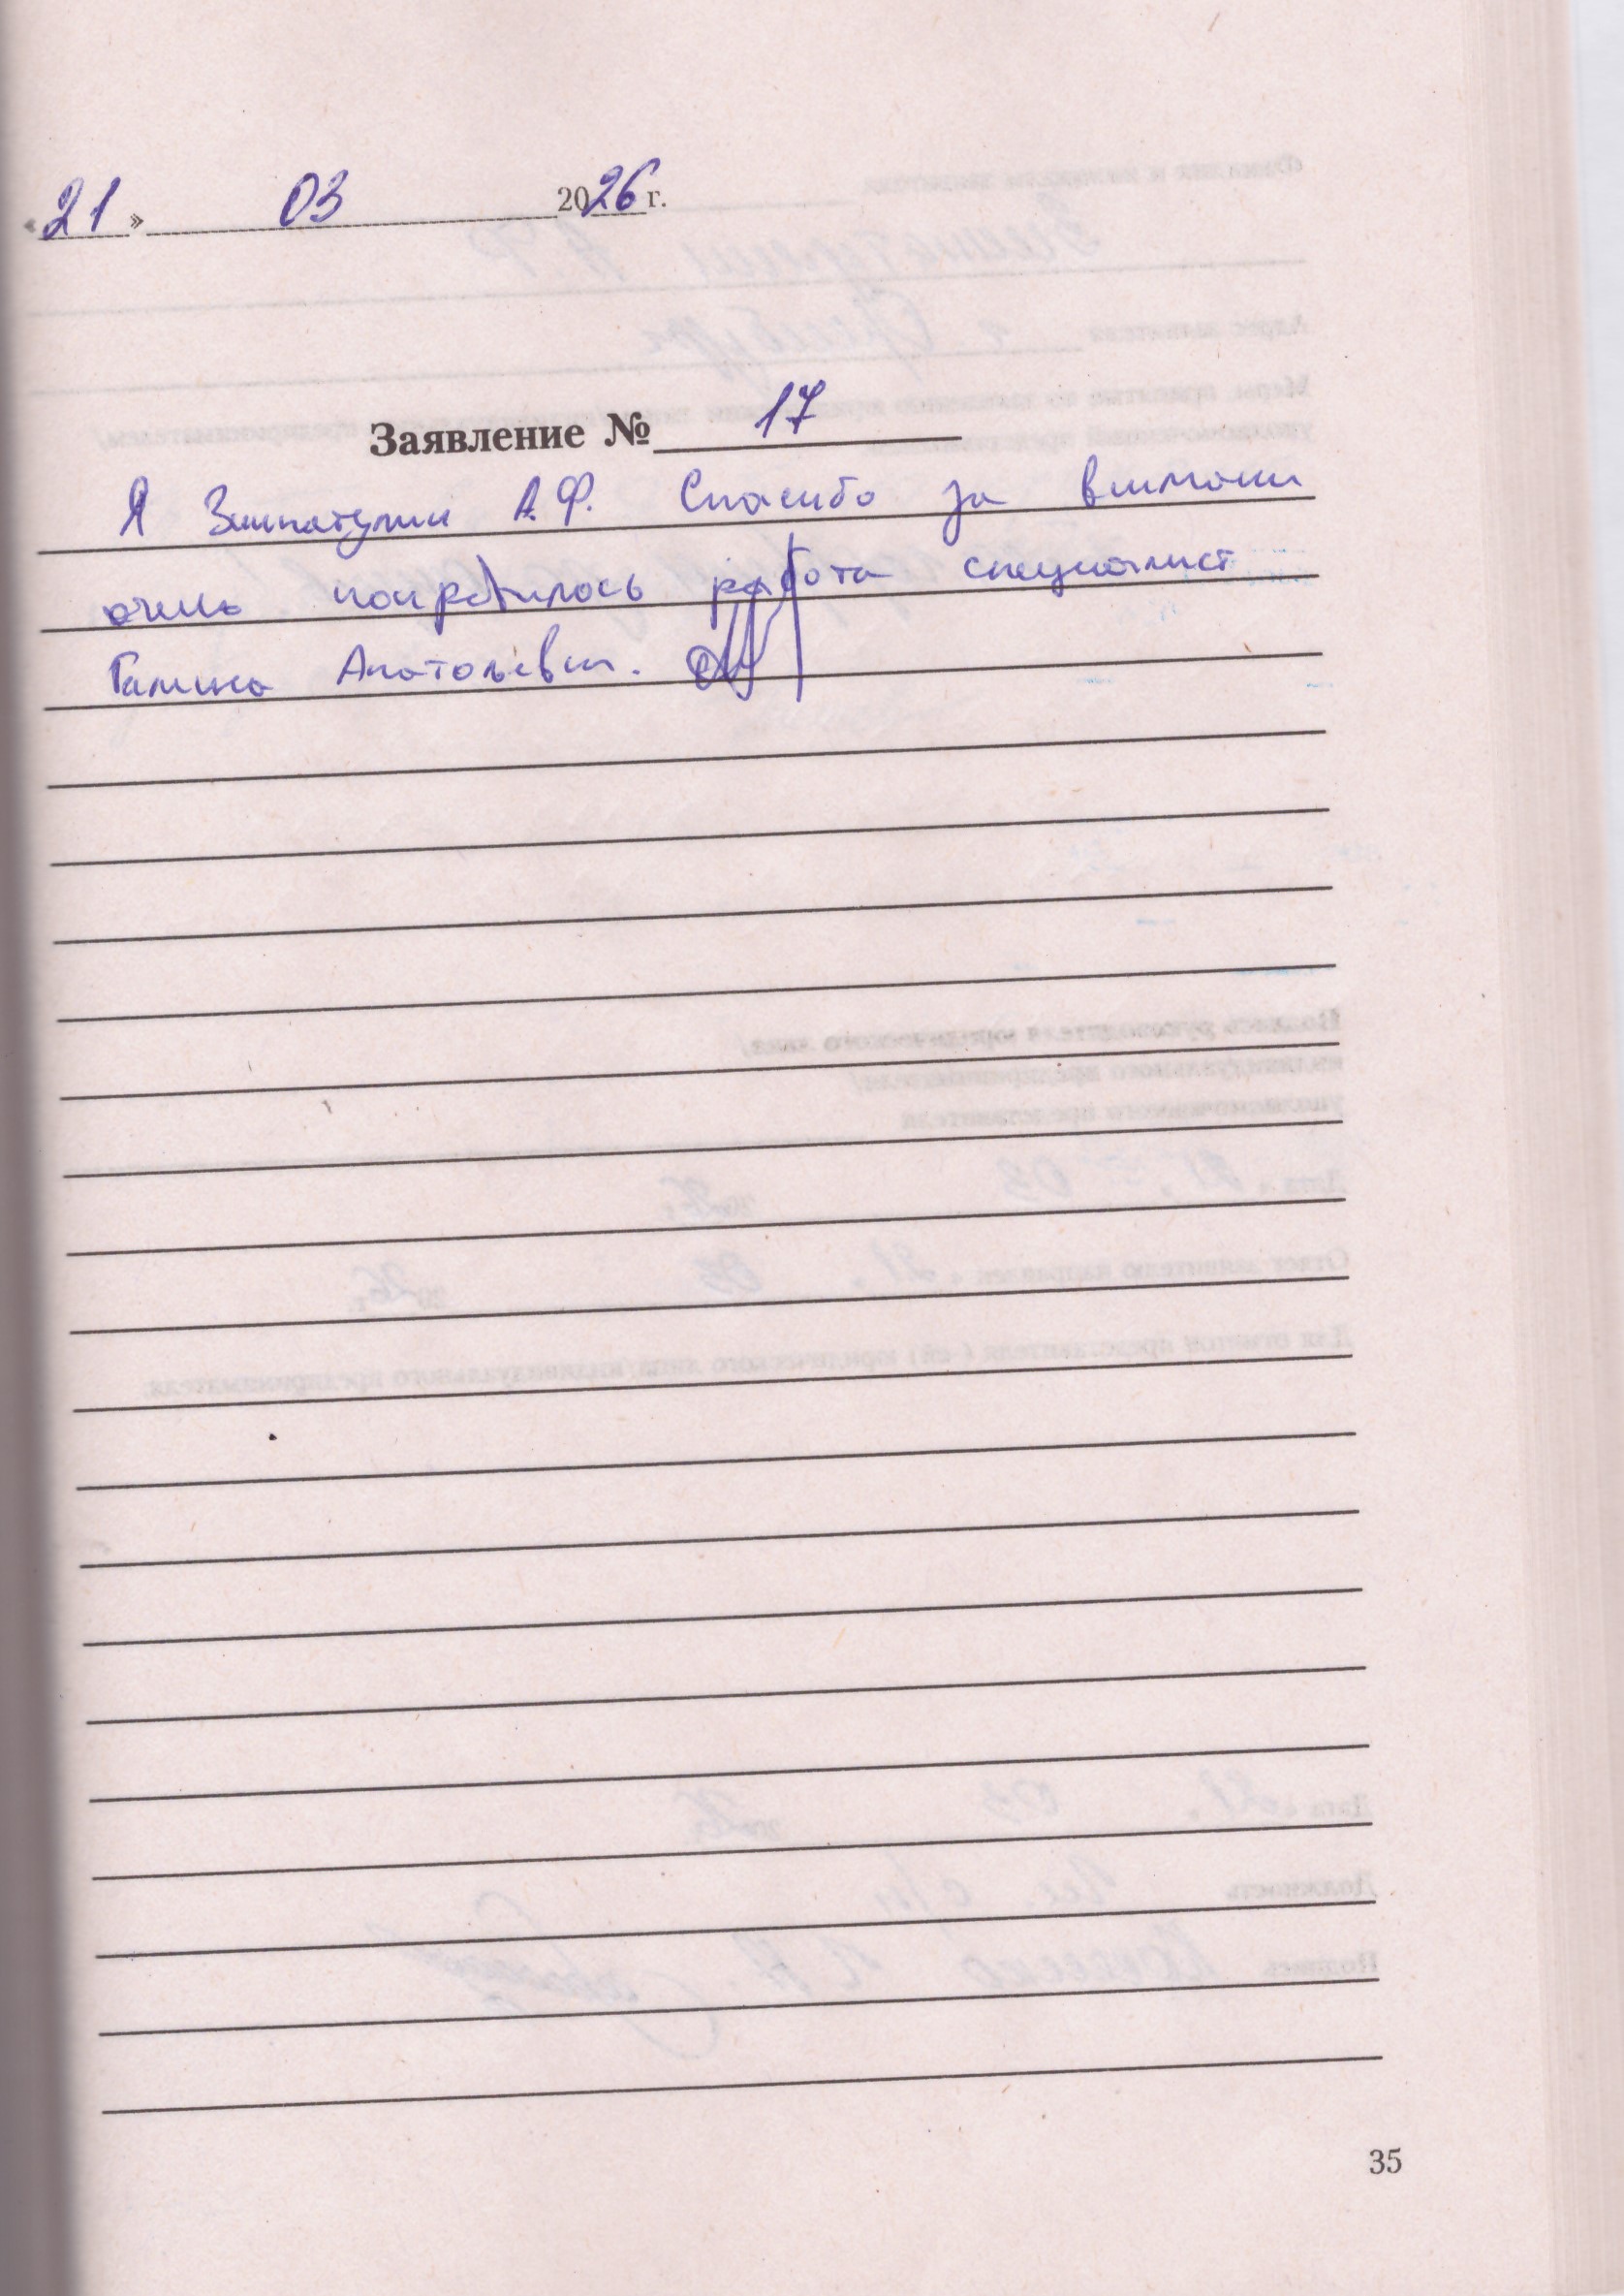 «21» 03 2026 г.
Заявление № 17
Я А.Ф. Спасибо за внимани
очень понравилось работа специалист
Галина Анатольевн.
35